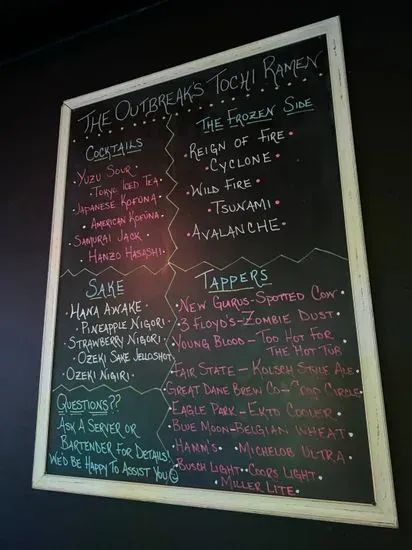 The Outbreak's Tochi Ramen
Cocktails
Yuzu Sour
Tokyo Iced Tea
Japanese Kofuna
American Kofuna
Samurai Jack
Hanzo Hasashi
The Frozen Side
Reign of Fire
Cyclone
Wild Fire
Tsunami
Avalanche
Sake
Hana Awake
Pineapple Nigori
Strawberry Nigori
Ozeki Sake Jelloshot
Ozeki Nigiri
Tappers
New Glarus - Spotted Cow
3 Floyd's - Zombie Dust
Young Blood - Too Hot For
The Hot Tub
Fair State - Kolsch Style Ale
Great Dane Brew Co - Crop Circle
Eagle Park - Ekto Cooler
Blue Moon - Belgian Wheat
Hamm's Michelob Ultra
Busch Light Coors Light
Miller Lite
Questions??
Ask A Server or
Bartender for Details!
We'd Be Happy To Assist You